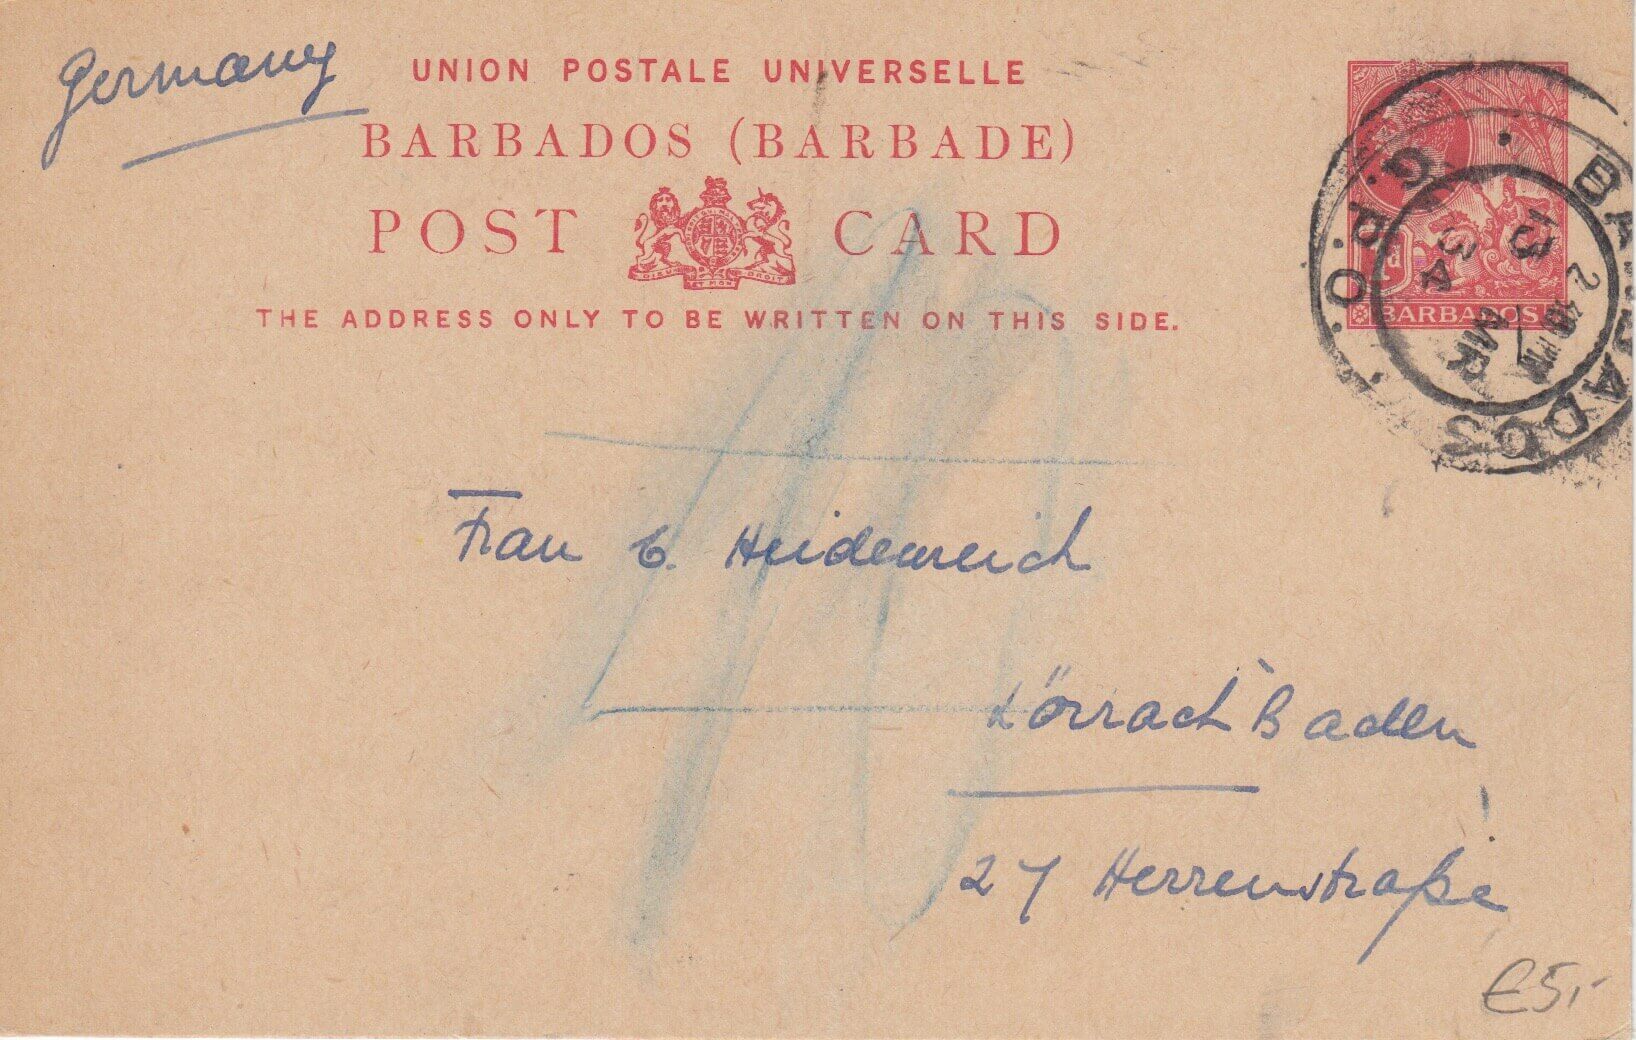 Germany
UNION POSTALE UNIVERSELLE
BARBADOS (BARBADE)
POST CARD
DIEU ET MON DROIT
THE ADDRESS ONLY TO BE WRITTEN ON THIS SIDE.
BARBADOS
G.P.O. BARBADOS
13 MR 34
Frau C. Heidenreich
Lörrach Baden
27 Herrenstraße
€5,-